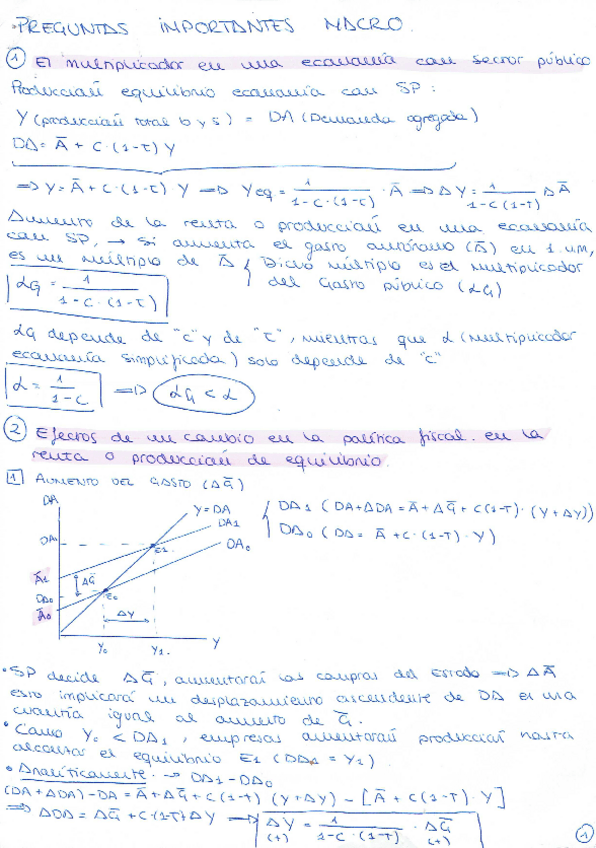 PREGUNTAS IMPORTANTES MACRO.
① El multiplicador en una economía con sector público
Producción equilibrio economía con SP:
Y (producción total b y s) = DA (Demanda agregada)
DA = Ā + c · (1-t) Y
⇒ Y = Ā + c · (1-t) · Y ⇒ Yeq = 1 / 1-c·(1-t) · Ā ⇒ ΔY = 1 / 1-c(1-t) ΔĀ
Aumento de la renta o producción en una economía
con SP, → Si aumenta el gasto autónomo (Ā) en 1 um,
es un múltiplo de Ā { Dicho múltiplo es el multiplicador
del Gasto público (αG)
αG = 1 / 1-c·(1-t)
αG depende de "c" y de "t", mientras que α (multiplicador
economía simplificada) solo depende de "c"
α = 1 / 1-c ⇒ αG < α
② Efectos de un cambio en la política fiscal en la
renta o producción de equilibrio.
1 AUMENTO DEL GASTO (ΔḠ)
DA
Y=DA
DA1
DA0
DA1
E1
Ā1
ΔḠ
DA0
E0
Ā0
ΔY
Y0
Y1
Y
DA1 (DA+ΔDA = Ā+ΔḠ+c(1-t)·(Y+ΔY))
DA0 (DA = Ā + c·(1-t)·Y)
• SP decide ΔḠ, aumentarán las compras del Estado ⇒ ΔĀ
esto implicará un desplazamiento ascendente de DA en una
cuantía igual al aumento de Ḡ.
• Como Y0 < DA1, empresas aumentarán producción hasta
alcanzar el equilibrio E1 (DA1 = Y1).
• Analíticamente: → DA1 - DA0
(DA+ΔDA) - DA = Ā+ΔḠ+c(1-t) (Y+ΔY) - [Ā + c(1-t)·Y]
⇒ ΔDA = ΔḠ + c·(1-t)ΔY ⇒ ΔY = 1 / 1-c·(1-t) · ΔḠ
(+) (+)
1